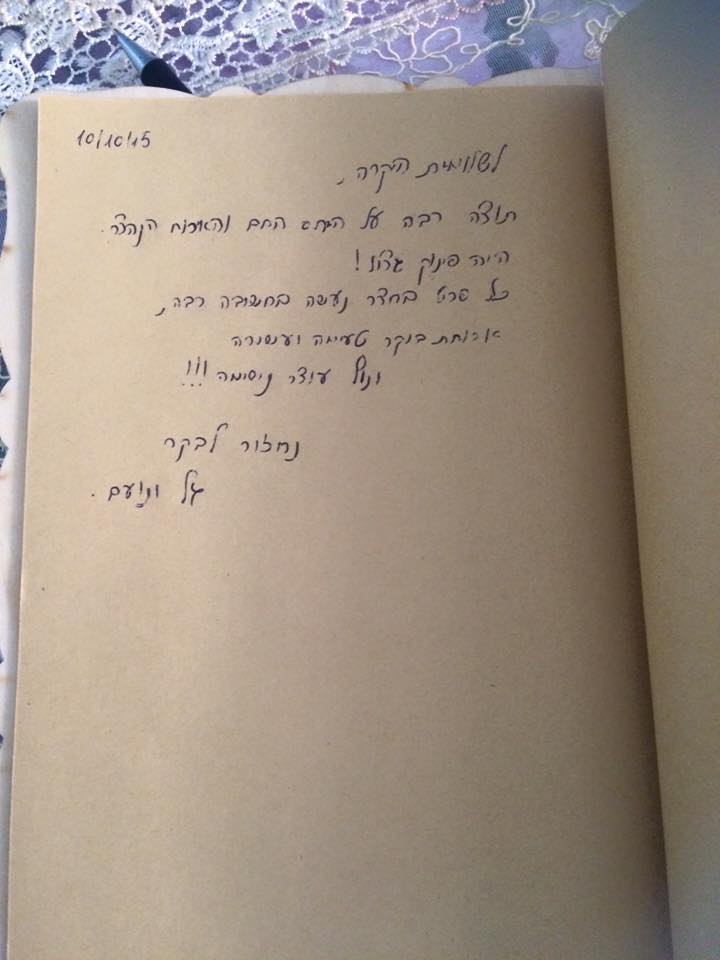 10/10/15
לשלומית היקרה,
תודה רבה על היחס החם והאירוח הנהדר.
היה פינוק גדול!
כל פרט בחדר נעשה במחשבה רבה,
ארוחת בוקר טעימה ועשירה
ונוף עוצר נשימה!!!
נחזור לבקר
גל ונועם.